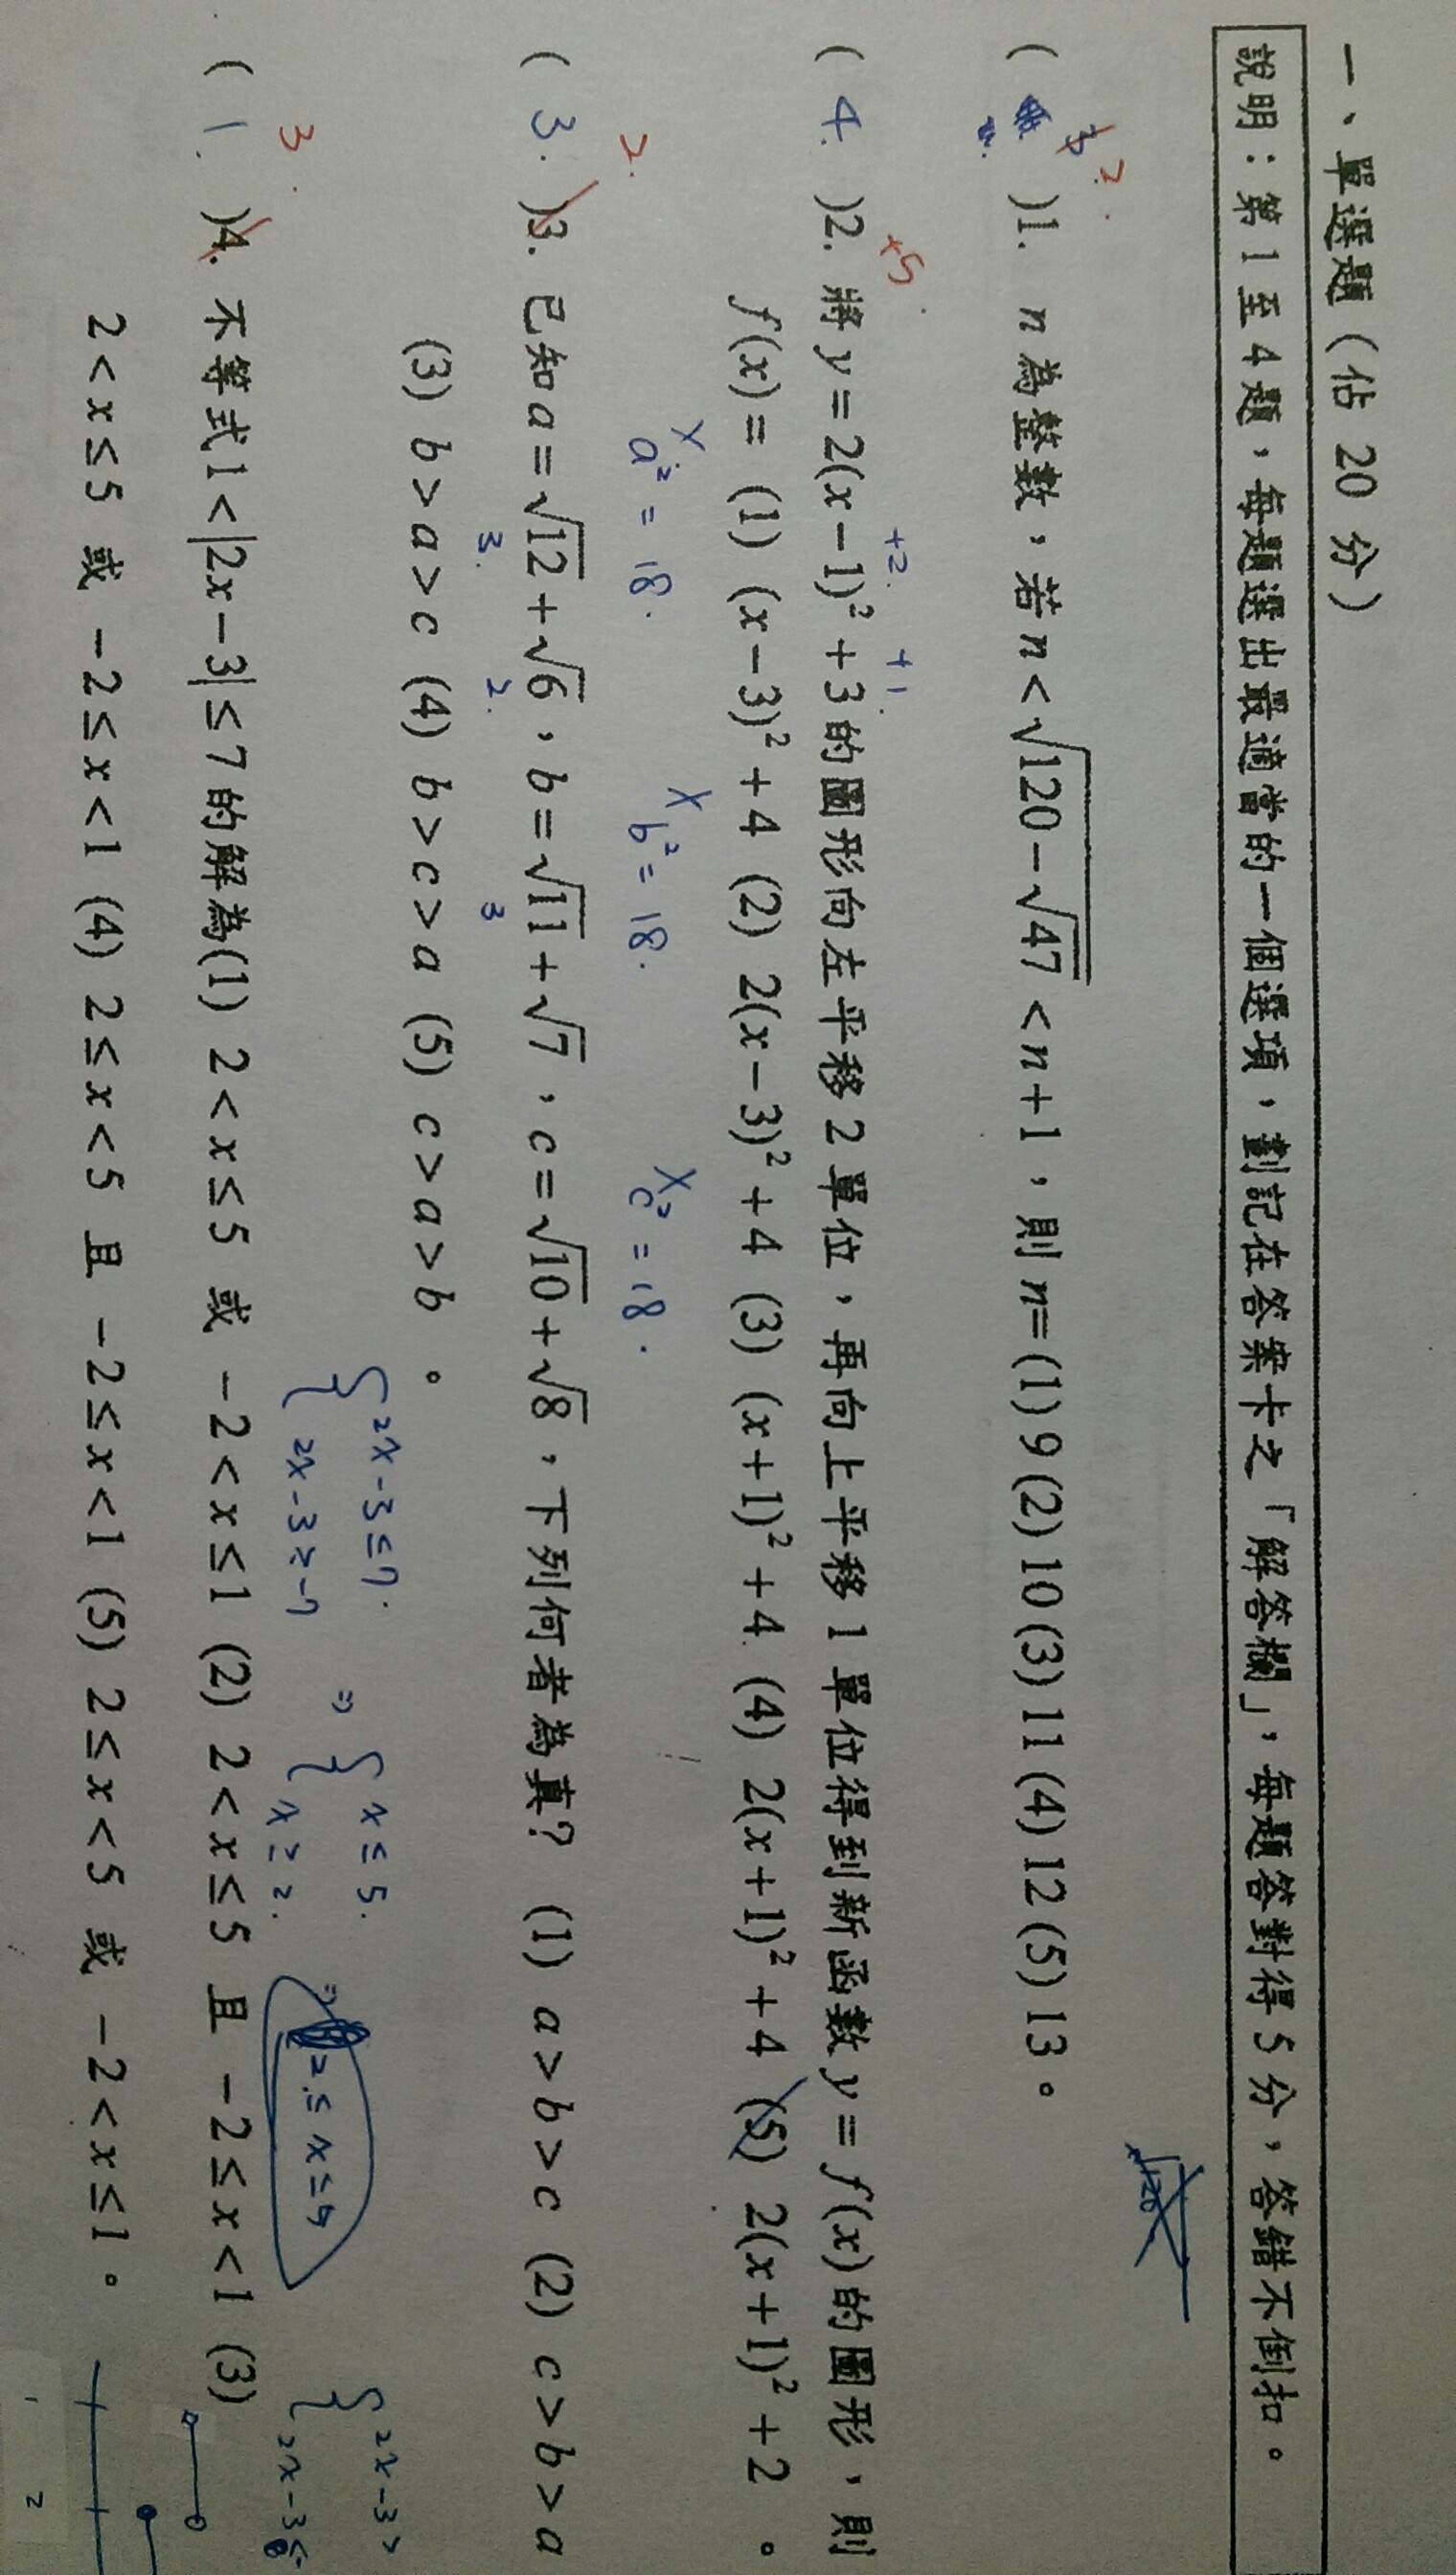 一、單選題(佔 20 分)
說明:第 1 至 4 題,每題選出最適當的一個選項,劃記在答案卡之「解答欄」,每題答對得 5 分,答錯不倒扣。
2.
( )1. n 為整數,若 n < √(120 − √47) < n + 1,則 n = (1) 9 (2) 10 (3) 11 (4) 12 (5) 13。
+5. +2. +1.
( 4. )2. 將 y = 2(x − 1)² + 3 的圖形向左平移 2 單位,再向上平移 1 單位得到新函數 y = f(x) 的圖形,則
f(x) = (1) (x − 3)² + 4 (2) 2(x − 3)² + 4 (3) (x + 1)² + 4 (4) 2(x + 1)² + 4 (5) 2(x + 1)² + 2 。
2. a² = 18. b² = 18. c² = 18.
( 3. )3. 已知 a = √12 + √6,b = √11 + √7,c = √10 + √8,下列何者為真? (1) a > b > c (2) c > b > a
3. 2. 3
(3) b > a > c (4) b > c > a (5) c > a > b 。
3. { 2x − 3 ≤ 7. ⇒ { x ≤ 5. { 2x − 3 >
2x − 3 ≥ −7 x ≥ 2. ⇒ 2 ≤ x ≤ 5 2x − 3 ≤
( 1. )4. 不等式 1 < |2x − 3| ≤ 7 的解為 (1) 2 < x ≤ 5 或 −2 < x ≤ 1 (2) 2 < x ≤ 5 且 −2 ≤ x < 1 (3)
2 < x ≤ 5 或 −2 ≤ x < 1 (4) 2 ≤ x < 5 且 −2 ≤ x < 1 (5) 2 ≤ x < 5 或 −2 < x ≤ 1 。
1 2